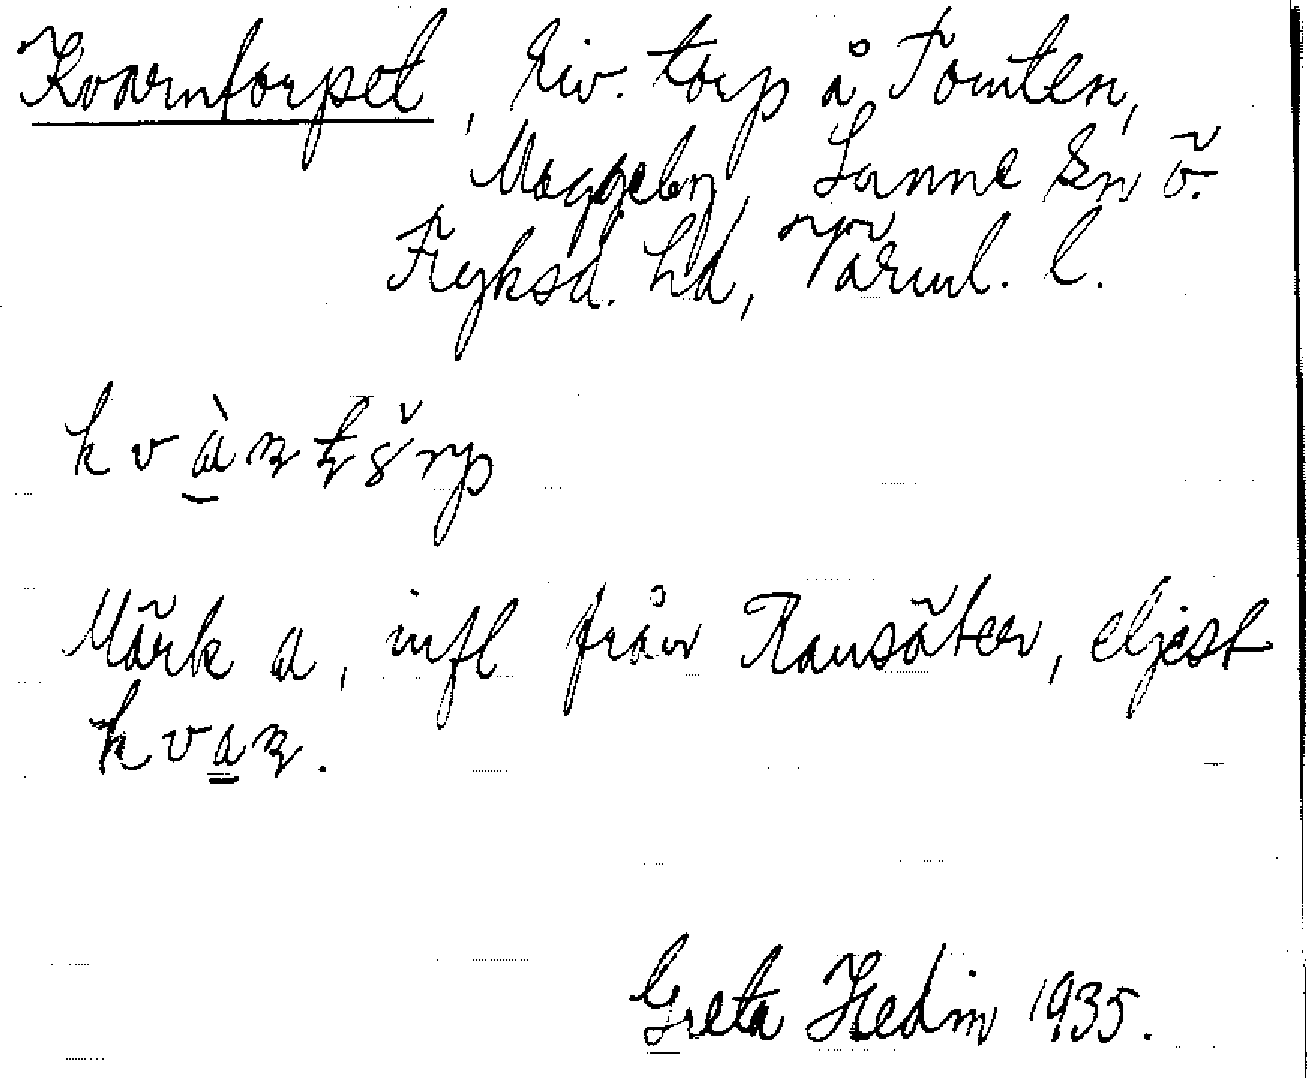 Kvarntorpet, liv. torp å Tomten,
Maggeby, Sunne sn ö.
Fryksd. hd, Värml. l.
kvàɳʈɤ̌rp
Märk a, infl från Ransäter, eljest
kvaɳ.
Greta Hedin 1935.